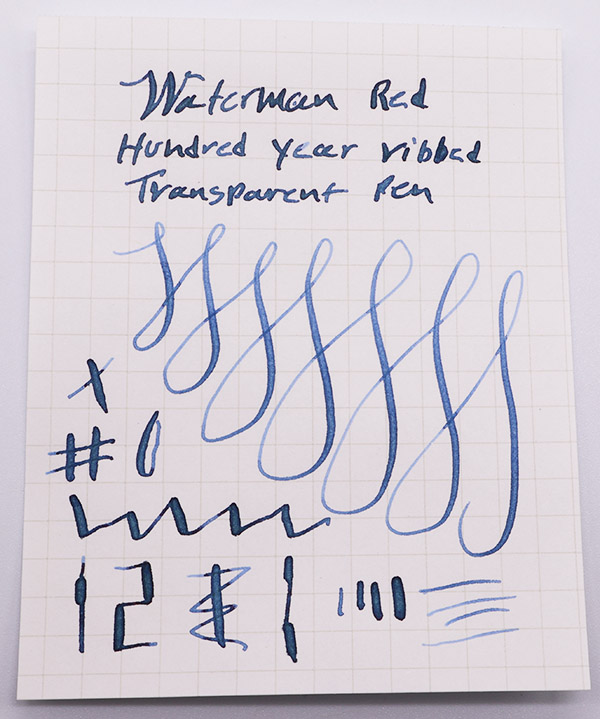 Waterman Red
Hundred year ribbed
Transparent Pen
x
# 0